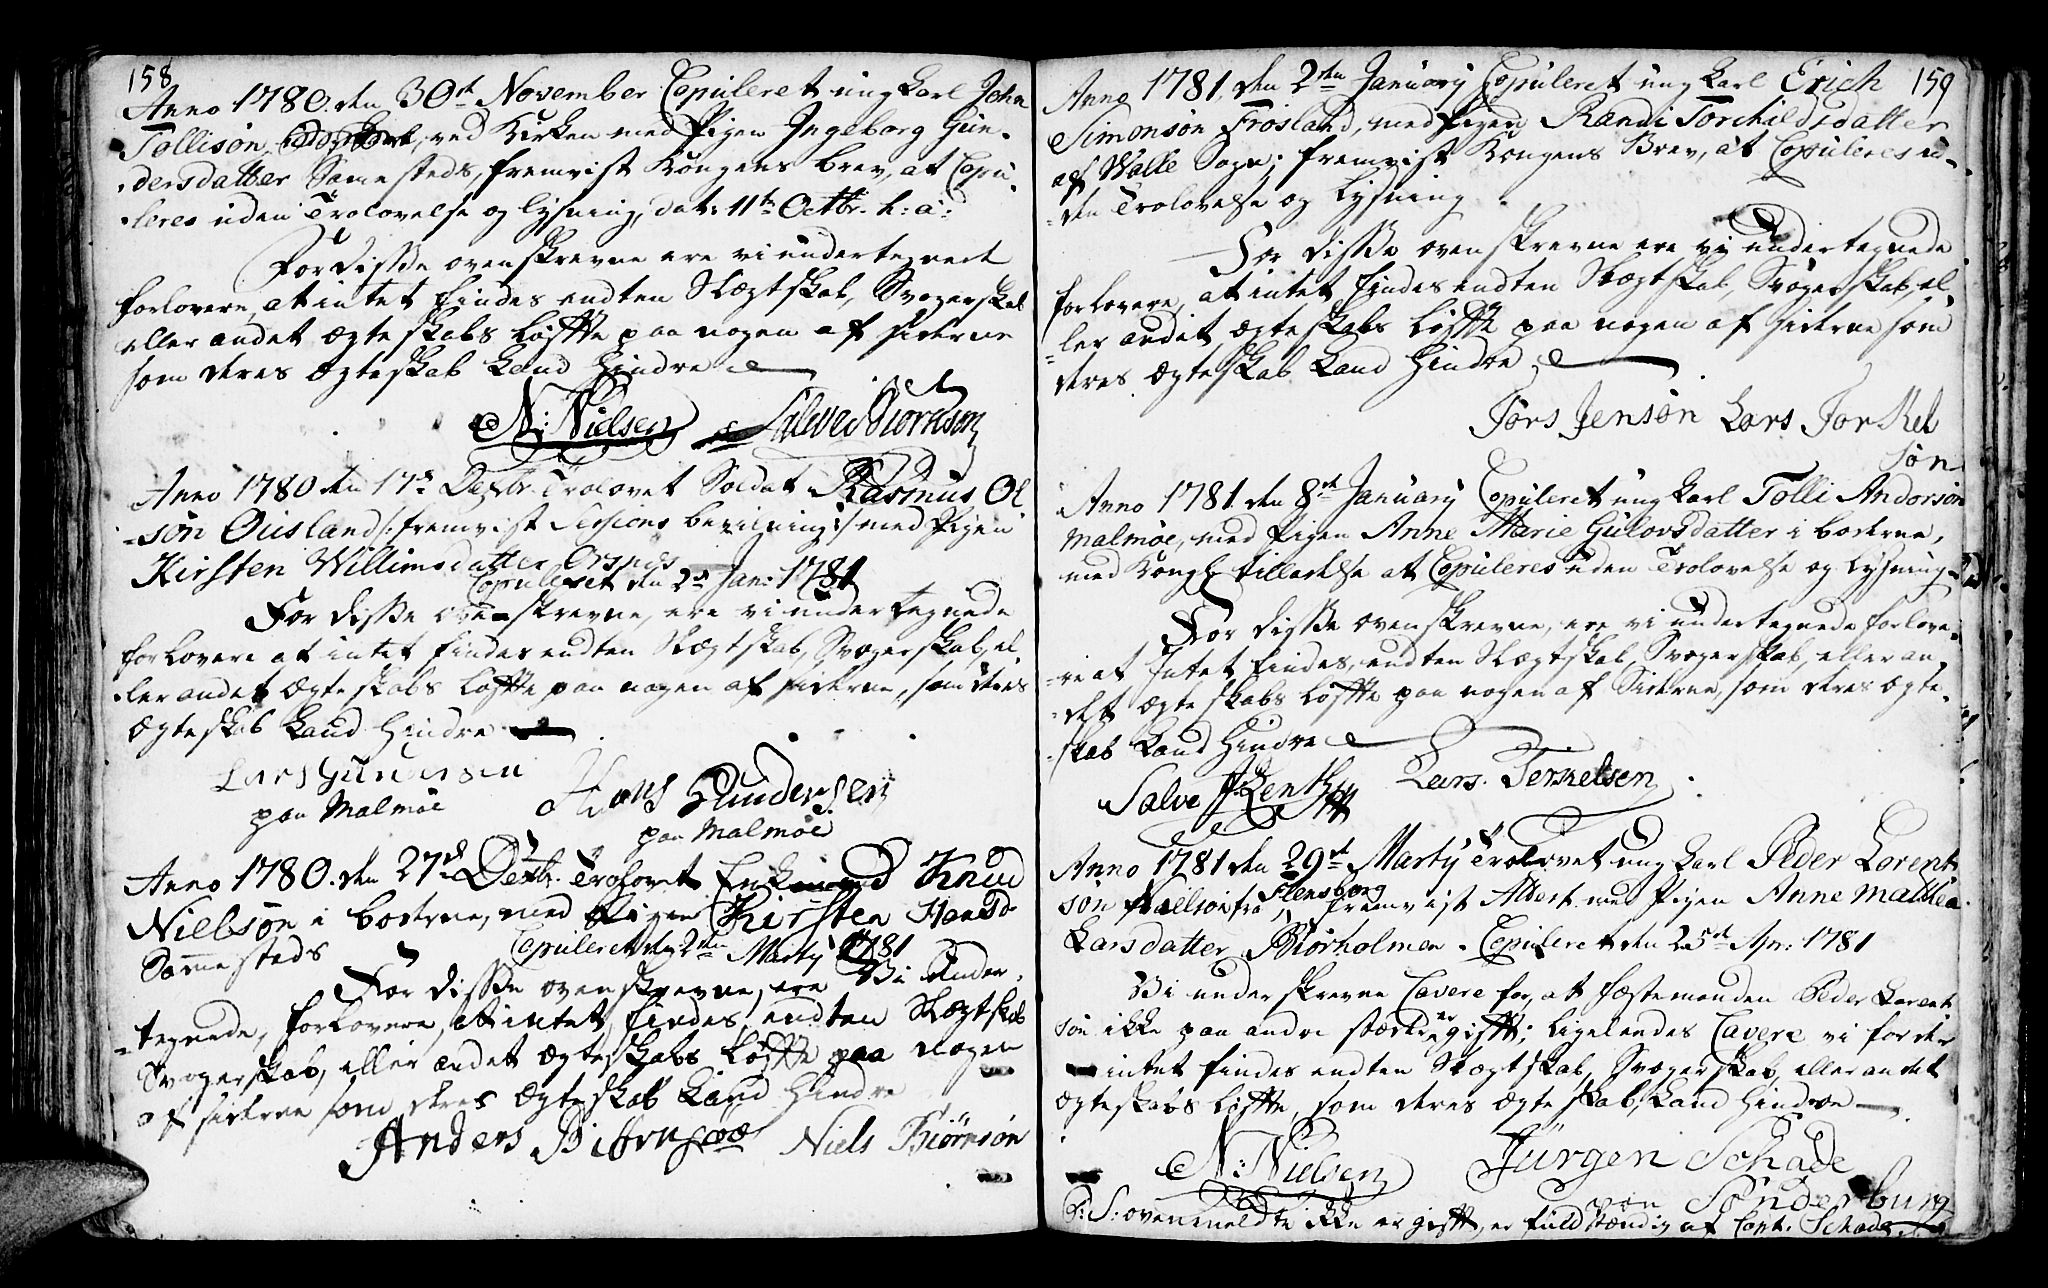 158
Anno 1780. den 30te November Copuleret ung Karl John
Tollisøn, ved Kirken med Pigen Ingeborg Gun-
-dersdatter Sammesteds, fremvist Kongens brev, at Copu-
-leres uden Trolovelse og lysning, dat: 11te Octbr. h: a:
For disse ovenskrevne ere vi undertegnede
forlovere, at intet findes endten Slægtskab, Svogerskab
eller andet ægteskabs løfte paa nogen af siderne
som deres ægteskab kand hindre
N: Nielsen Salve Biørnsøn
Anno 1780 den 17de Decbr. Trolovet Soldat Rasmus Ol
-søn Ousland /: fremvist Sessions bevilning :/ med Pigen
Kirsten Willimsdatter Orsnes
Copuleret den 2den Jan: 1781
For disse ovenskrevne, ere vi undertegnede
forlovere at intet findes endten Slægtskab, Svogerskab, el-
-ler andet ægteskabs løfte paa nogen af siderne, som deres
ægteskab kand hindre
Lars Gundersen Hans Gundersen
paa Malmøe paa Malmøe
Anno 1780. den 27de Decbr. Trolovet Enkemand Knud
Nielsøn i boerne, med Pigen Kirsten Hansd.
Sammesteds Copuleret den 2den Martij 1781
For disse ovenskrevne, ere Vi under-
-tegnede, forlovere, at intet findes, endten Slægtskab
Svogerskab, eller andet ægteskabs løfte paa nogen
af siderne som deres ægteskab kand hindre
Anders Biørnsøn Niels Biørnsøn
159
Anno 1781, den 2den January Copuleret ung Karl Erich
Simonsøn Frøsland, med Pigen Randi Torchildsdatter
af Walle Sogn; fremvist Kongens Brev, at Copuleres u-
-den Trolovelse og lysning
For disse ovenskrevne ere vi undertegnede
forlovere, at intet findes endten Slægtskab, Svogerskab, el-
-ler andet ægteskabs løfte paa nogen af siderne som
deres ægteskab kand hindre
Jørs Jensøn Lars Torkel
søn
Anno 1781 den 8de January Copuleret ung Karl Tolli Andorsøn
Malmøe, med Pigen Anne Marie Gulovsdatter i boerne,
med Kongl: tilladelse at Copuleres uden Trolovelse og lysning
For disse ovenskrevne, ere vi undertegnede forlove-
-re at Intet findes, endten Slægtskab, Svogerskab, eller an-
-det ægteskabs løfte paa nogen af Siderne, som deres ægte-
-skab kand hindre
Salve Lars Terkelsen
Anno 1781 den 29de Martij Trolovet ung Karl Peder Lorent
søn fra Flensborg, fremvist Attest med Pigen Anne Malthea
Larsdatter Biørholmen. Copuleret den 25de Apr: 1781
Vi underskrevne Cavere for, at fæstemanden Peder Lorent
søn ikke paa andre stæder er gift; ligeledes Cavere vi for der
intet findes endten Slægtskab, Svogerskab, eller andet
ægteskabs løfte, som deres ægteskab, kand hindre
N: Nielsen Jürgen Schade
von Sonderburg
P: S: ovenmeldte ikke er gift, er fuldstændig af Capt. Schade